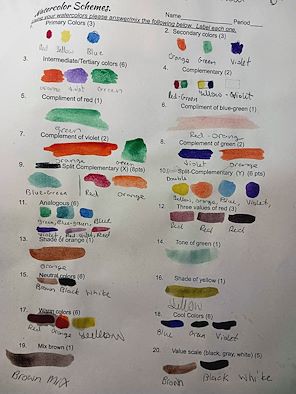 Watercolor Schemes.
Name Period
your watercolors please answer/mix the following below. Label each one.
Primary Colors (3)
Red Yellow Blue
2. Secondary colors (3)
Orange Green Violet
3. Intermediate/Tertiary colors (6)
orange violet Green
4. Complementary (2)
Red-Green Yellow-Violet
5. Compliment of red (1)
Green
6. Compliment of blue-green (1)
Red-Orange
7. Compliment of violet (2)
Orange Green
8. Compliment of green (2)
Violet Orange
9. Split Complementary (X) (6pts)
Blue-Green Red Orange
10. Split-Complementary (Y) (6 pts)
Double
Yellow, orange, Blue, Violet,
11. Analogous (6)
Green, Blue-Green, Blue
Violet, Red-violet, Red
12. Three values of red (3)
Red Red Red
13. Shade of orange (1)
orange
14. Tone of green (1)
Green
15. Neutral colors (6)
Brown Black White
16. Shade of yellow (1)
Yellow
17. Warm colors (6)
Red Orange Yellow
18. Cool Colors (6)
Blue Green Violet
19. Mix brown (1)
Brown MIX
20. Value scale (black, gray, white) (5)
Brown Black White